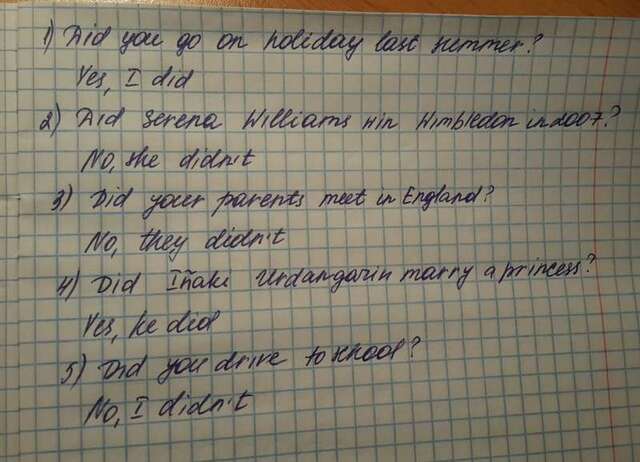 1) Did you go on holiday last summer?
Yes, I did
2) Did Serena Williams win Wimbledon in 2007?
No, she didn't
3) Did your parents meet in England?
No, they didn't
4) Did Iñaki Urdangarin marry a princess?
Yes, he did
5) Did you drive to school?
No, I didn't